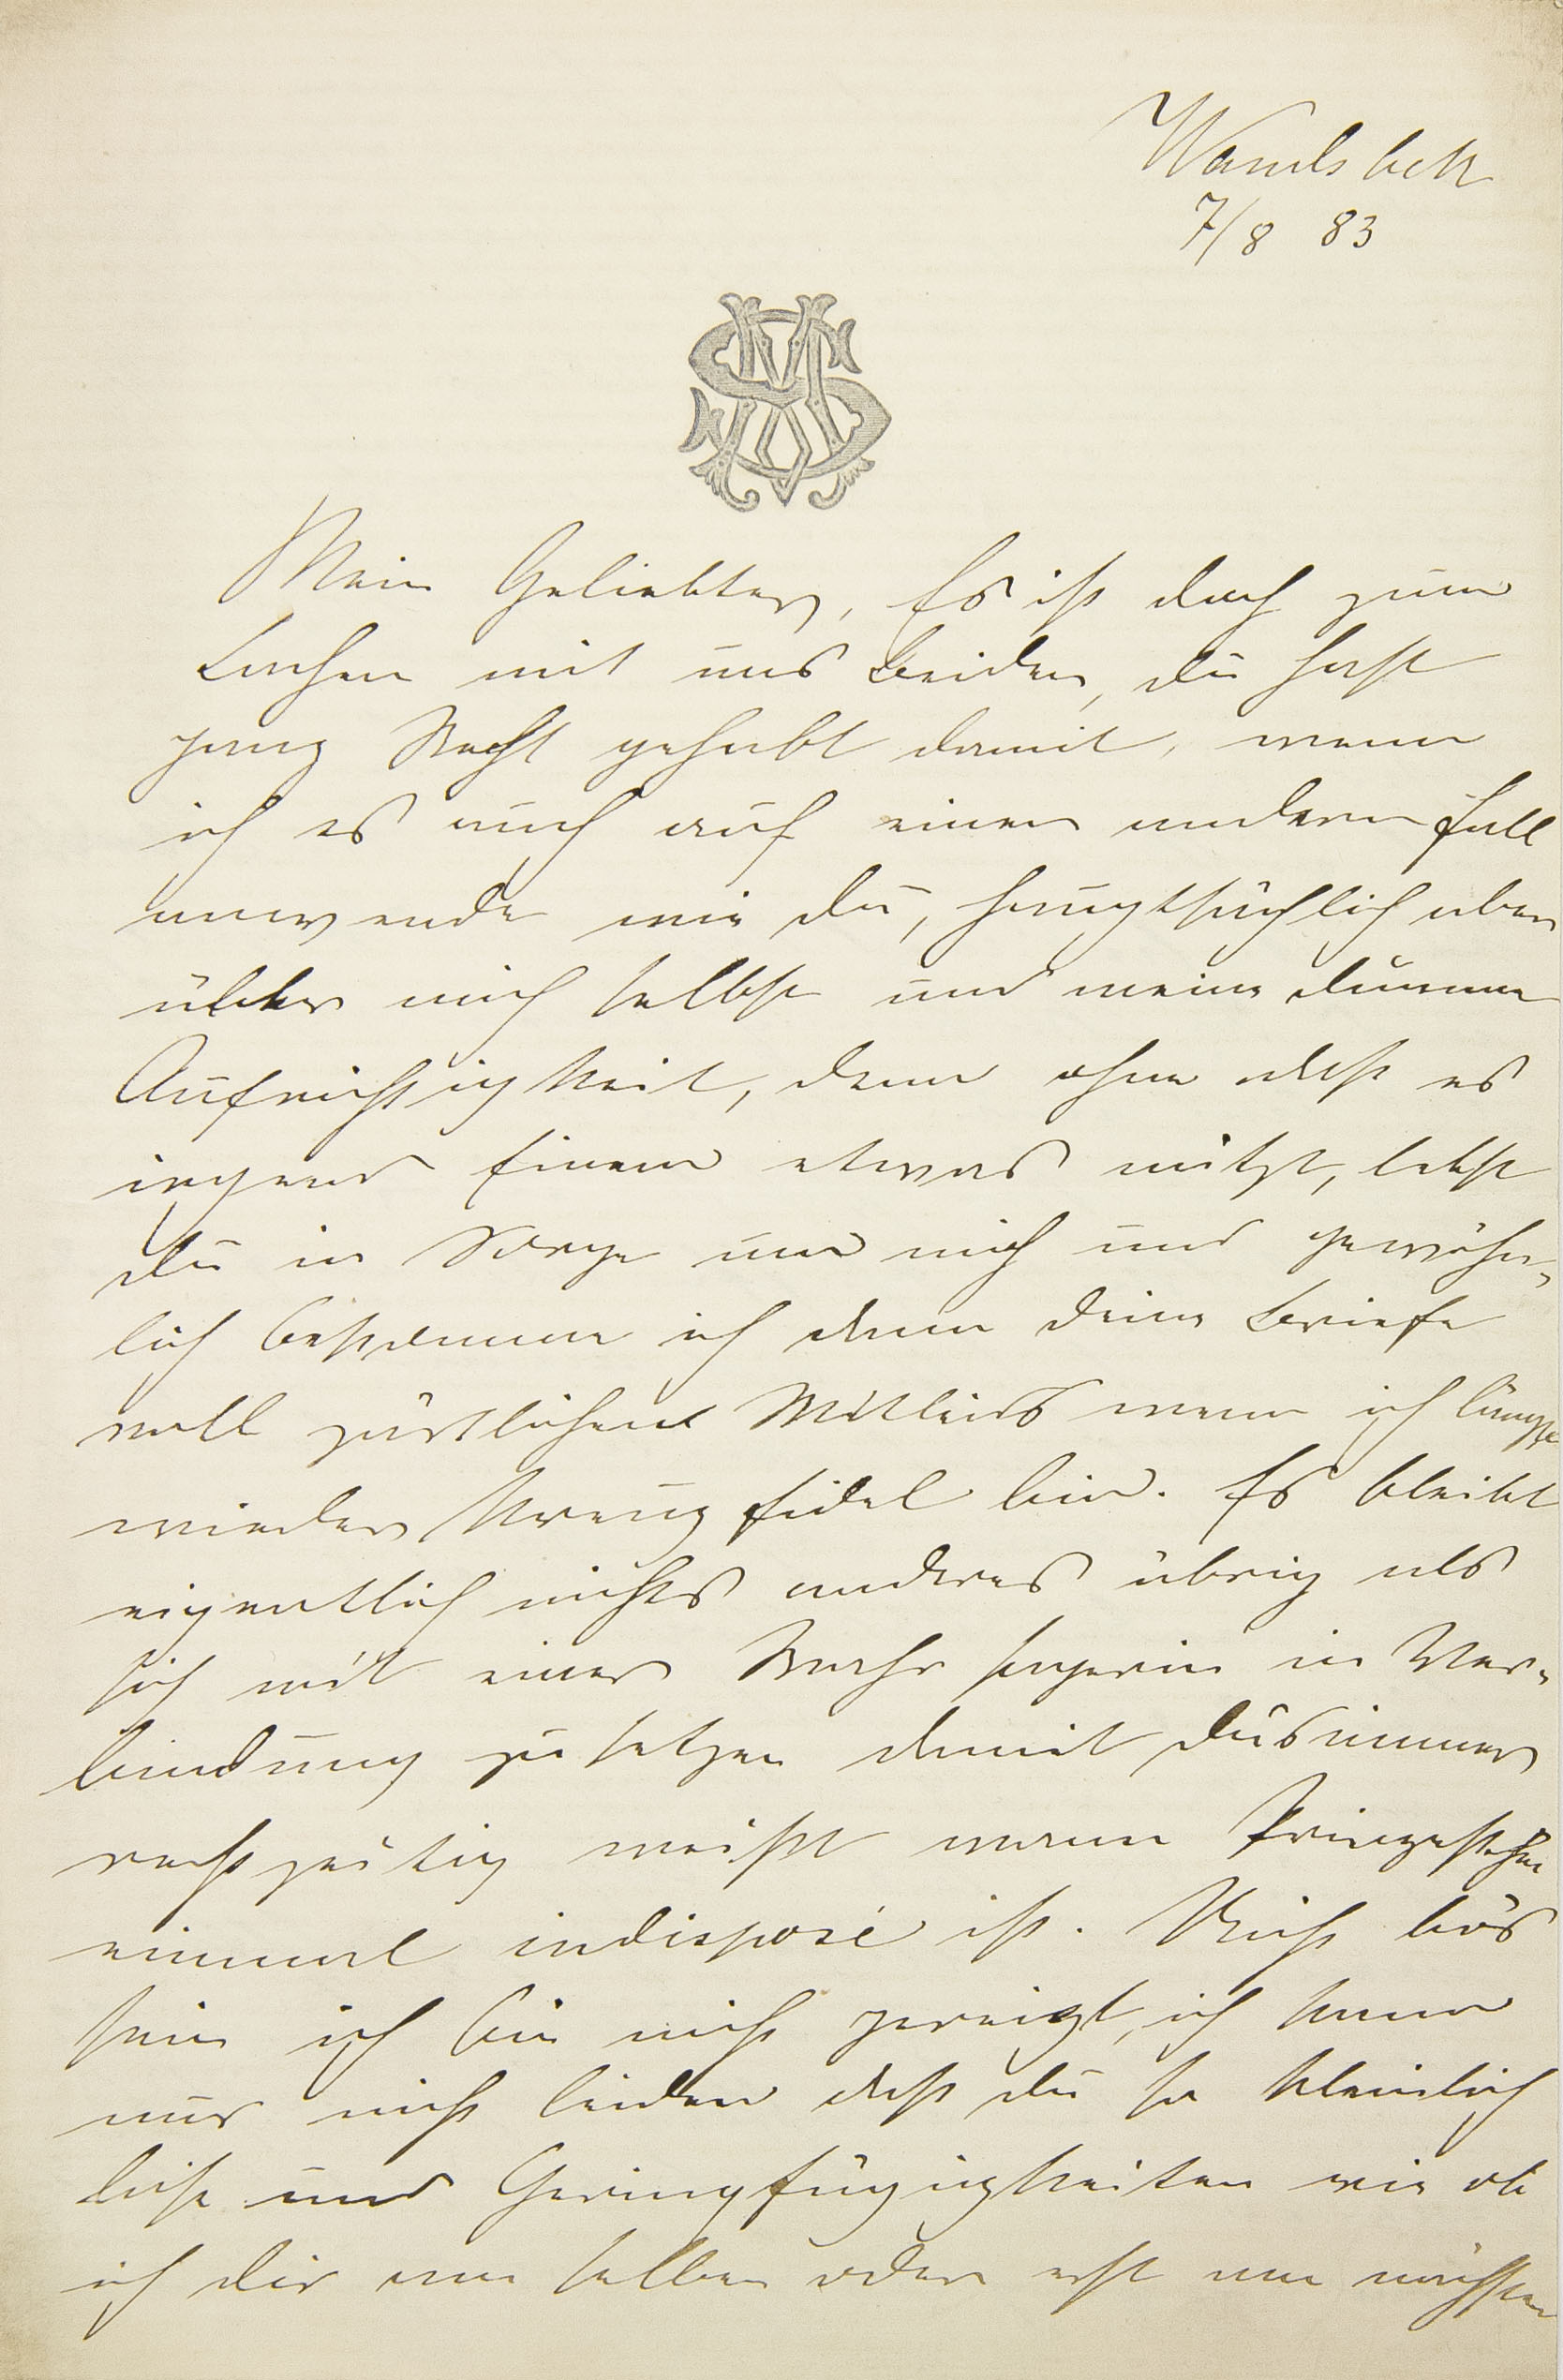 Wandsbek
7/8 83
MS
Mein Geliebter, Es ist doch zum
Lachen mit uns Beiden, du hast
ganz Recht gehabt damit, wenn
ich es auch auf einen anderen Fall
anwende wie du, hauptsächlich aber
über mich selbst und meine dumme
Aufrichtigkeit, denn ohne daß es
irgend Einem etwas nützt, lebst
du in Sorge um mich und gewöhn-
lich bekomme ich dann deine Briefe
voll zärtlichem Mitleids wenn ich längst
wieder kreuzfidel bin. Es bleibt
eigentlich nichts anderes übrig als
sich mit einer Wahrsagerin in Ver-
bindung zu setzen damit du immer
rechtzeitig weißt wann Prinzeßchen
einmal indisposé ist. Nicht bös
sein ich bin nicht gereizt, ich kann
nur nicht leiden daß du so kleinlich
bist und Geringfügigkeiten wie ob
ich dir am selben oder erst am nächsten